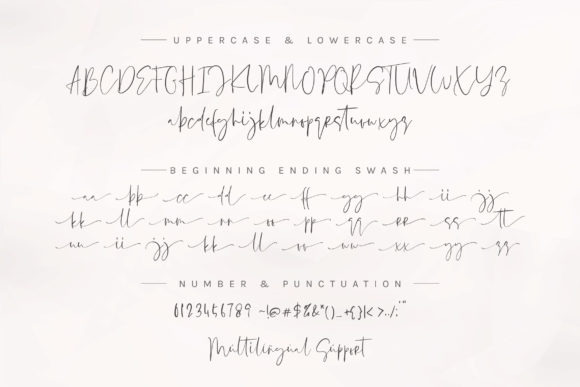 UPPERCASE & LOWERCASE
ABCDEFGHIJKLMNOPQRSTUVWXYZ
abcdefghijklmnopqrstuvwxyz
BEGINNING ENDING SWASH
aa bb cc dd ee ff gg hh ii jj
kk ll mm nn oo pp qq rr ss tt
uu ii jj kk ll oo ww xx yy zz
NUMBER & PUNCTUATION
0123456789 ~!@#$%&*()_+{}|<>../:'"
Multilingual Support